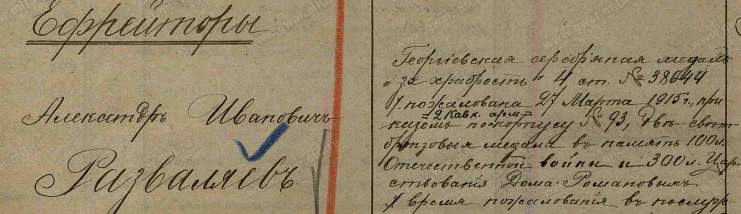 Ефрейторы
Александръ Ивановичъ
Разваляевъ
Георгіевская серебряная медаль
„за храбрость“ 4 ст. № 38644
пожалована 27 Марта 1915 г., при-
2 Кавк. арм.
казомъ по корпусу № 93, Двѣ свѣт
бронзовыя медали въ память 100л.
Отечественной войны и 300л. Цар-
ствованія Дома Романовыхъ.
время пожалованія въ послуж